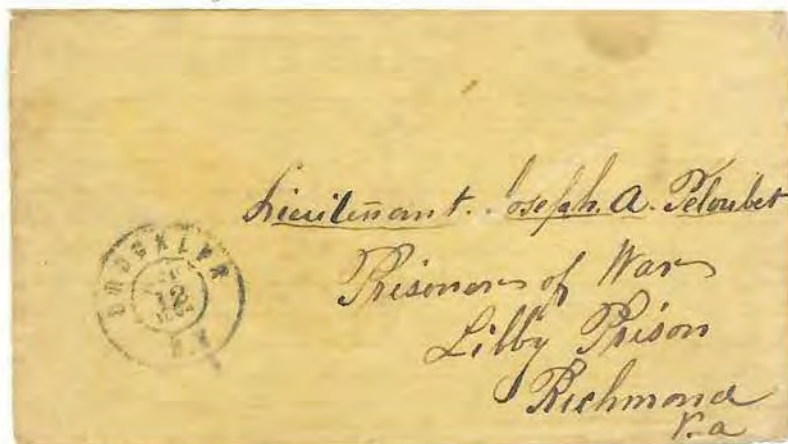 Lieutenant. Joseph. A. Peloubet
Prisoner of War
Libby Prison
Richmond
Va
BROOKLYN
12
N.Y.